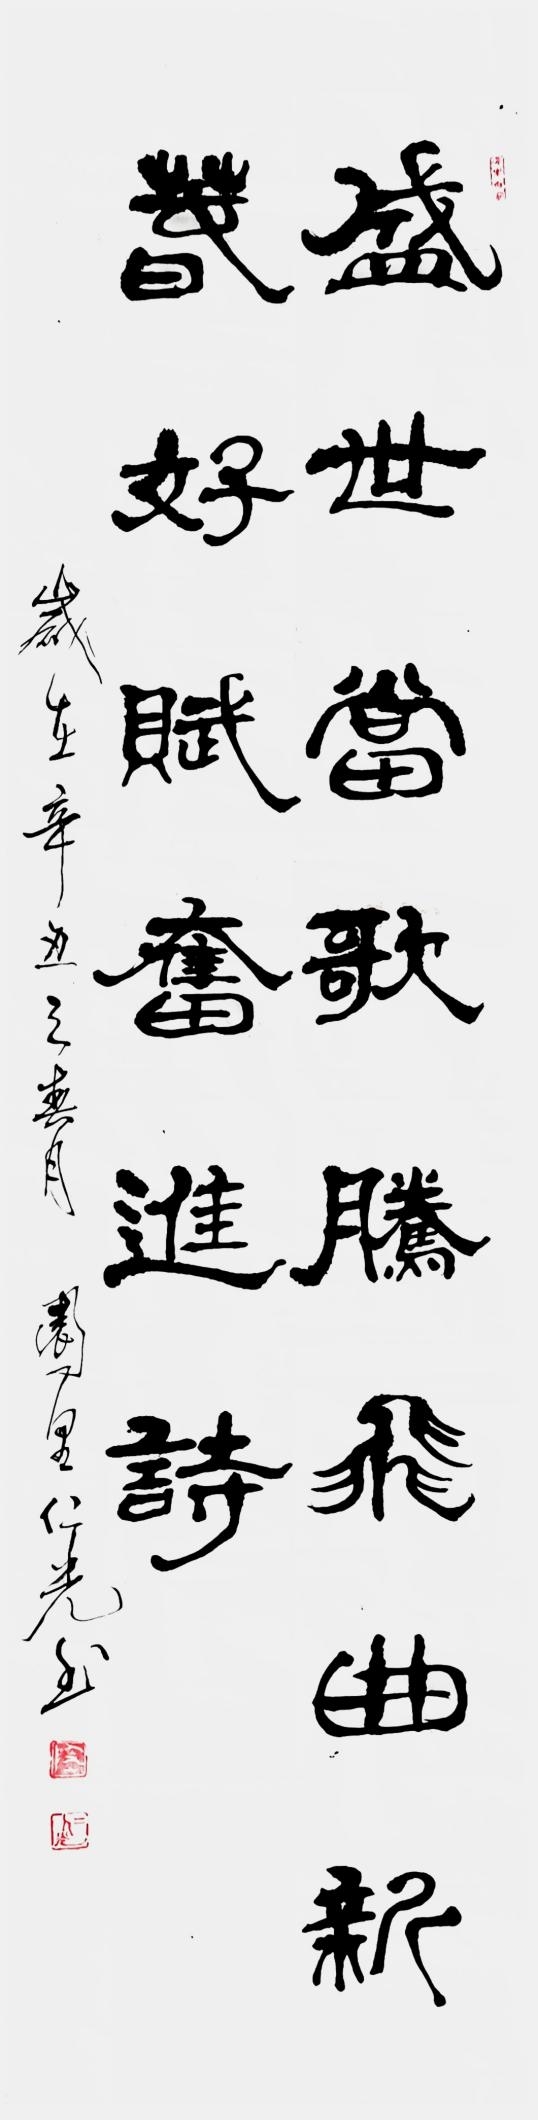 盛世當歌騰飛曲新
春好賦奮進詩
歲在辛丑之春月 里仁光